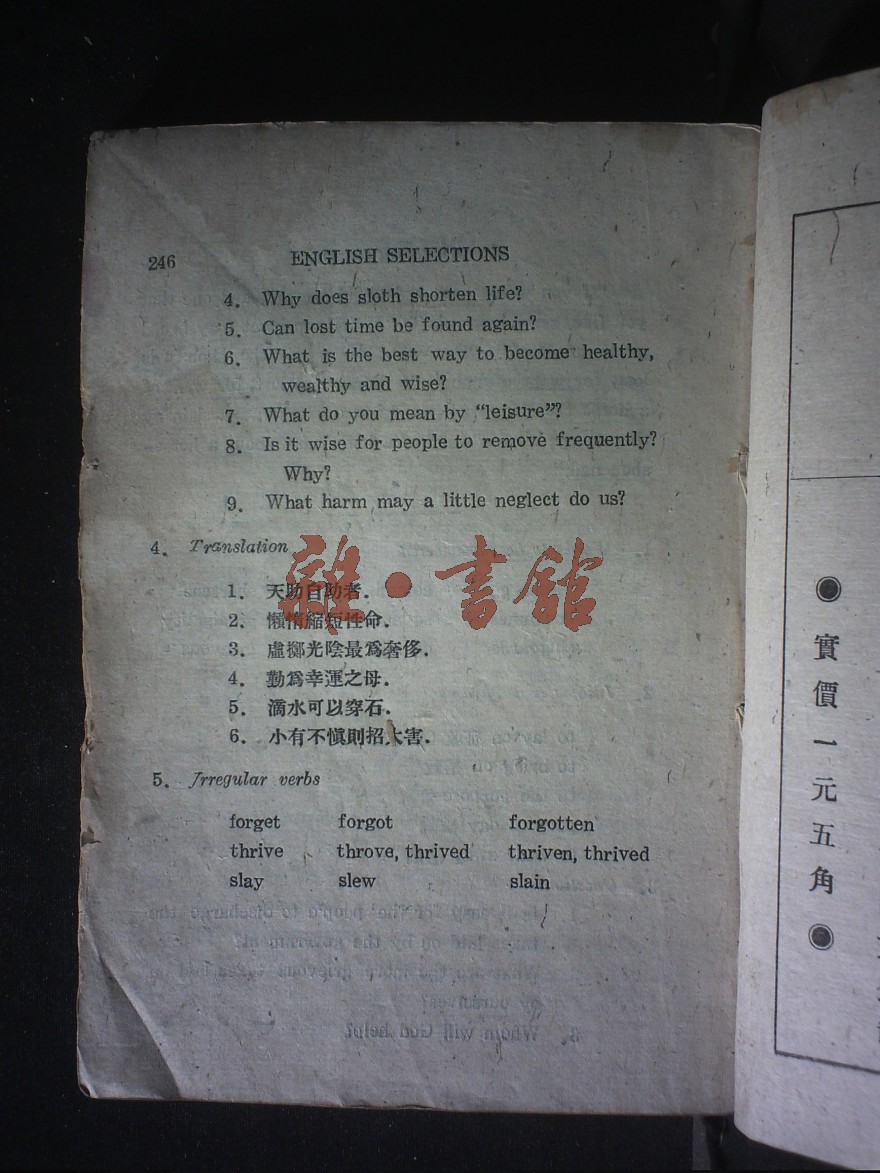 246 ENGLISH SELECTIONS
4. Why does sloth shorten life?
5. Can lost time be found again?
6. What is the best way to become healthy,
wealthy and wise?
7. What do you mean by "leisure"?
8. Is it wise for people to remove frequently?
Why?
9. What harm may a little neglect do us?
4. Translation
1. 天助自助者.
2. 懶惰縮短性命.
3. 虛擲光陰最爲奢侈.
4. 勤爲幸運之母.
5. 滴水可以穿石.
6. 小有不愼則招大害.
5. Irregular verbs
forget forgot forgotten
thrive throve, thrived thriven, thrived
slay slew slain
雜·書館
實價一元五角